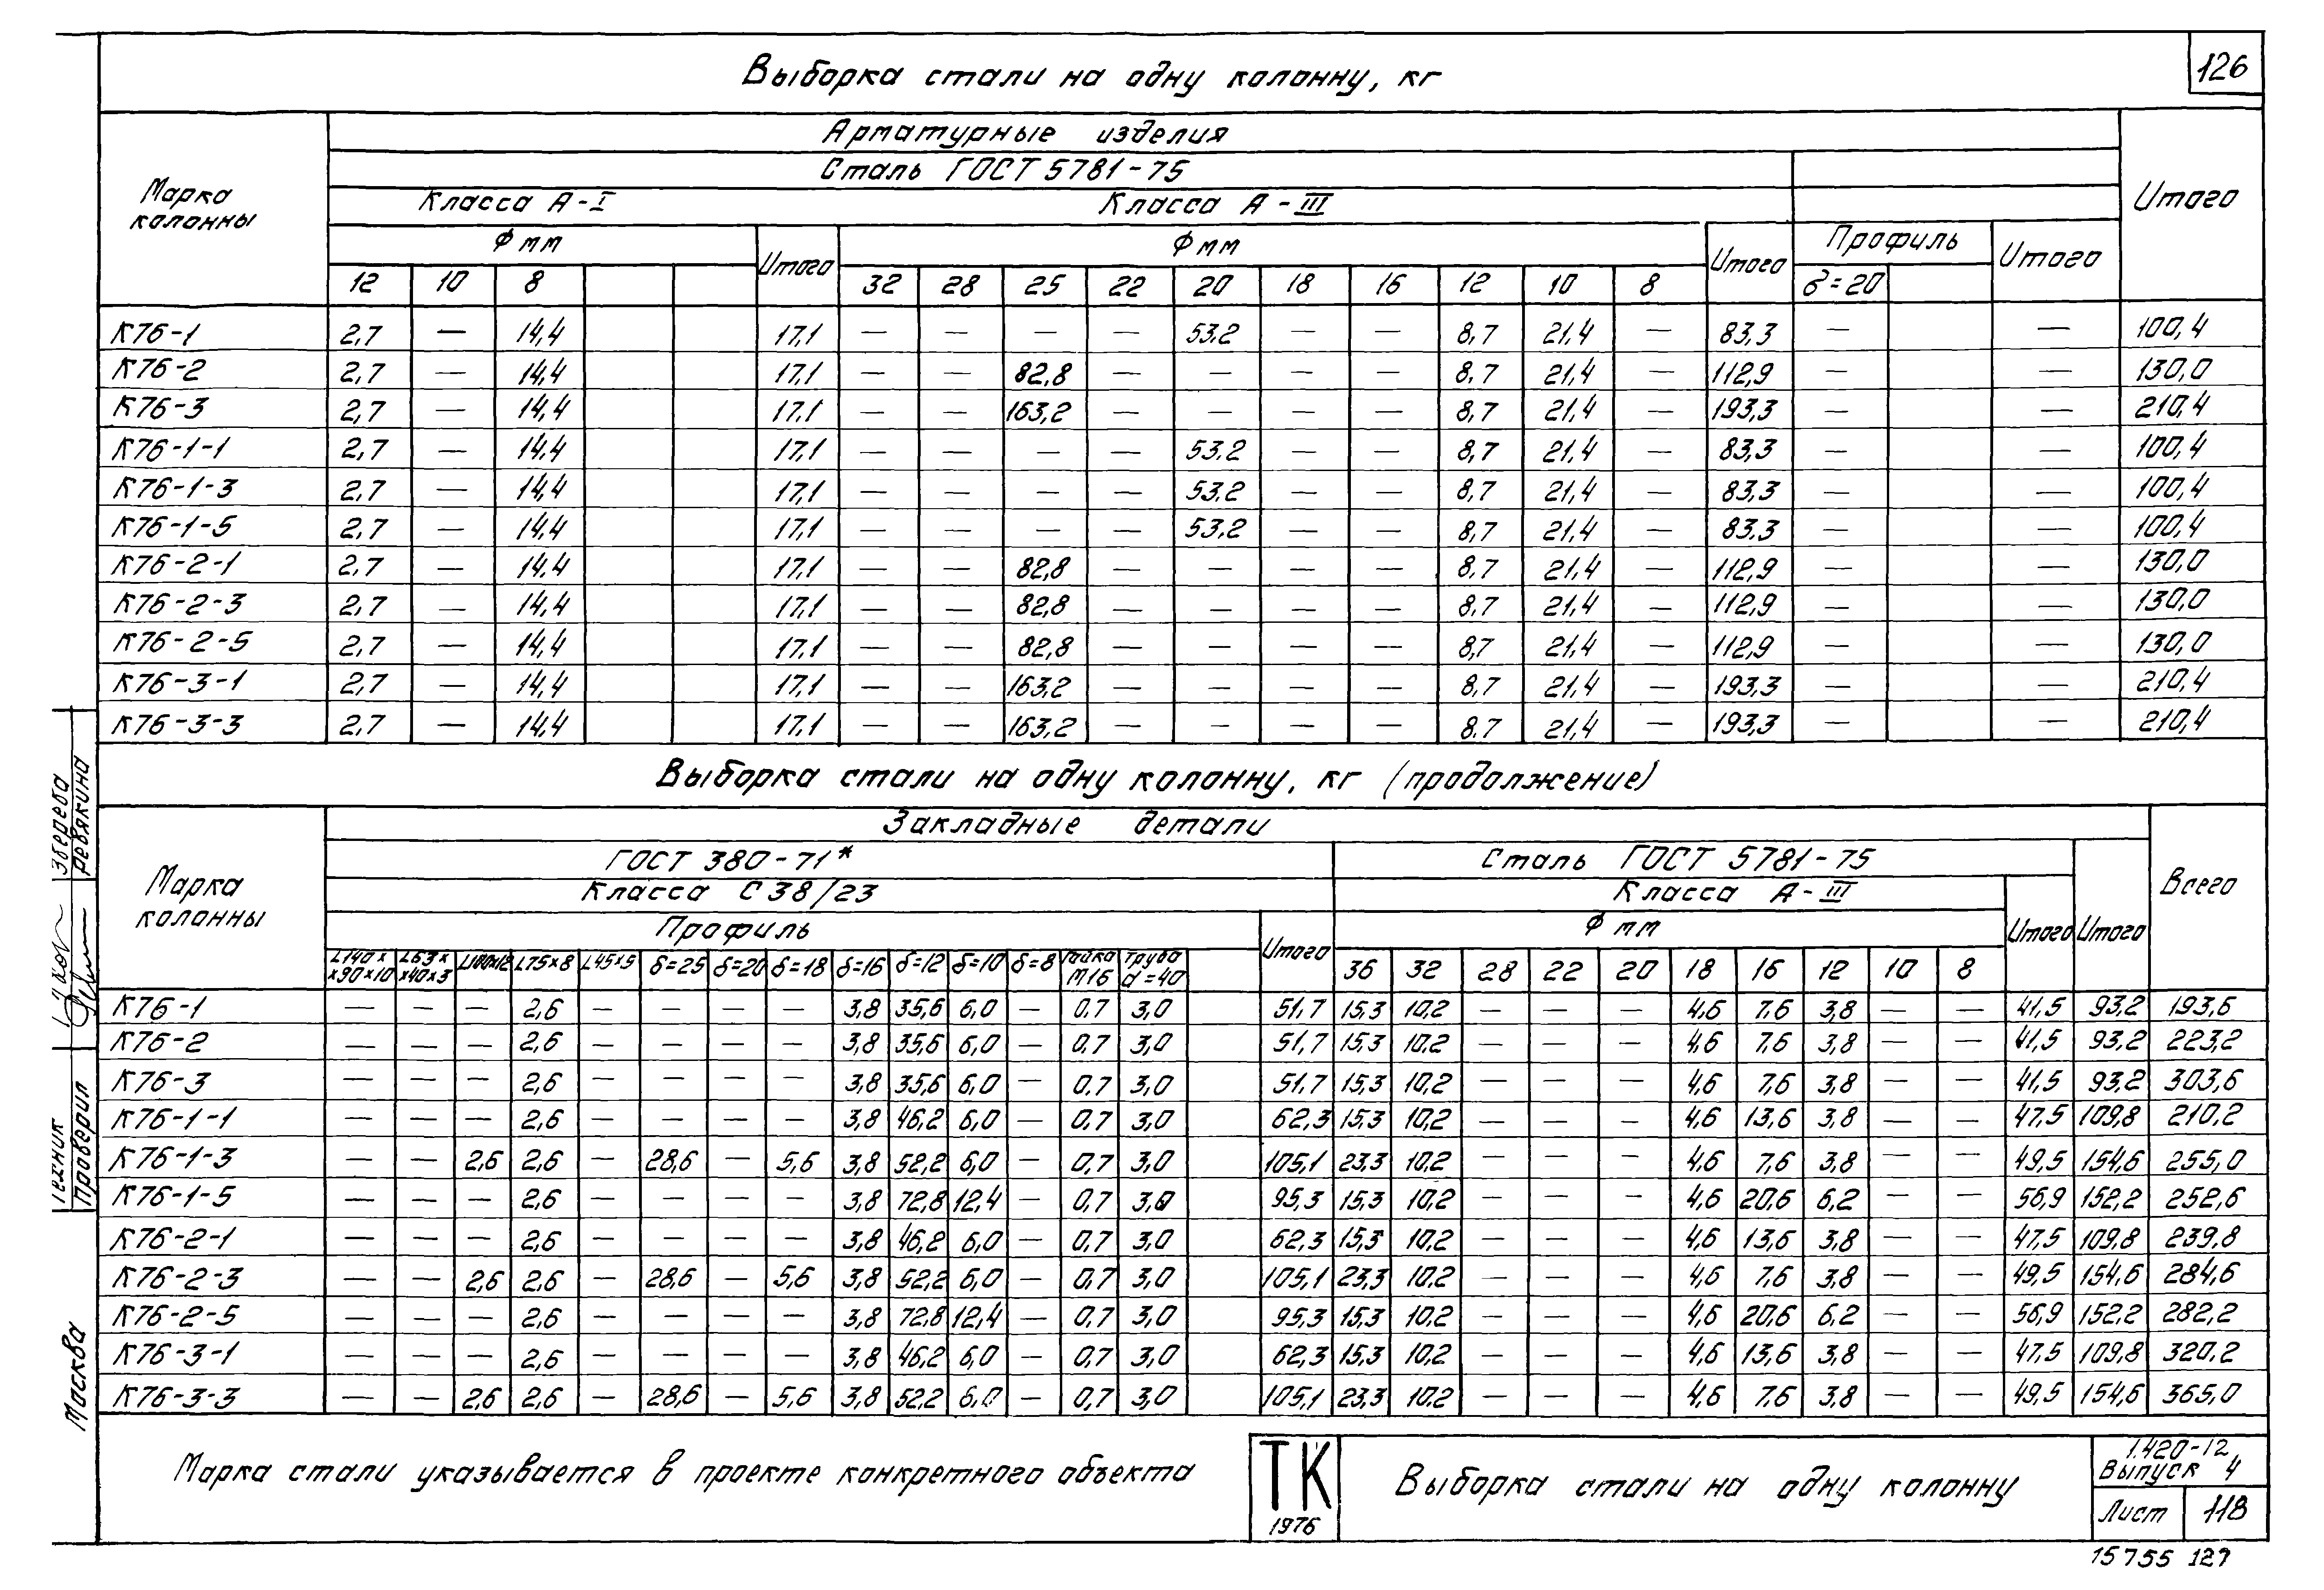 126
Выборка стали на одну колонну, кг
Марка колонны
Арматурные изделия
Итого
Сталь ГОСТ 5781-75
Класса А-I Класса А-III
Ф мм Итого Ф мм Итого Профиль Итого
12 10 8 32 28 25 22 20 18 16 12 10 8 δ=20
К76-1 2,7 — 14,4 17,1 — — — — 53,2 — — 8,7 21,4 — 83,3 — — 100,4
К76-2 2,7 — 14,4 17,1 — — 82,8 — — — — 8,7 21,4 — 112,9 — — 130,0
К76-3 2,7 — 14,4 17,1 — — 163,2 — — — — 8,7 21,4 — 193,3 — — 210,4
К76-1-1 2,7 — 14,4 17,1 — — — — 53,2 — — 8,7 21,4 — 83,3 — — 100,4
К76-1-3 2,7 — 14,4 17,1 — — — — 53,2 — — 8,7 21,4 — 83,3 — — 100,4
К76-1-5 2,7 — 14,4 17,1 — — — — 53,2 — — 8,7 21,4 — 83,3 — — 100,4
К76-2-1 2,7 — 14,4 17,1 — — 82,8 — — — — 8,7 21,4 — 112,9 — — 130,0
К76-2-3 2,7 — 14,4 17,1 — — 82,8 — — — — 8,7 21,4 — 112,9 — — 130,0
К76-2-5 2,7 — 14,4 17,1 — — 82,8 — — — — 8,7 21,4 — 112,9 — — 130,0
К76-3-1 2,7 — 14,4 17,1 — — 163,2 — — — — 8,7 21,4 — 193,3 — — 210,4
К76-3-3 2,7 — 14,4 17,1 — — 163,2 — — — — 8,7 21,4 — 193,3 — — 210,4
Выборка стали на одну колонну, кг (продолжение)
Марка колонны
Закладные детали
Всего
ГОСТ 380-71* Сталь ГОСТ 5781-75
Класса С38/23 Класса А-III
Профиль Итого Ф мм Итого Итого
L140××90×10 L63××40×5 L180×12 L75×8 L45×5 δ=25 δ=20 δ=18 δ=16 δ=12 δ=10 δ=8 Гайка М16 Труба d=40 36 32 28 22 20 18 16 12 10 8
К76-1 — — — 2,6 — — — — 3,8 35,6 6,0 — 0,7 3,0 51,7 15,3 10,2 — — — 4,6 7,6 3,8 — — 41,5 93,2 193,6
К76-2 — — — 2,6 — — — — 3,8 35,6 6,0 — 0,7 3,0 51,7 15,3 10,2 — — — 4,6 7,6 3,8 — — 41,5 93,2 223,2
К76-3 — — — 2,6 — — — — 3,8 35,6 6,0 — 0,7 3,0 51,7 15,3 10,2 — — — 4,6 7,6 3,8 — — 41,5 93,2 303,6
К76-1-1 — — — 2,6 — — — — 3,8 46,2 6,0 — 0,7 3,0 62,3 15,3 10,2 — — — 4,6 13,6 3,8 — — 47,5 109,8 210,2
К76-1-3 — — 2,6 2,6 — 28,6 — 5,6 3,8 52,2 6,0 — 0,7 3,0 105,1 23,3 10,2 — — — 4,6 7,6 3,8 — — 49,5 154,6 255,0
К76-1-5 — — — 2,6 — — — — 3,8 72,8 12,4 — 0,7 3,0 95,3 15,3 10,2 — — — 4,6 20,6 6,2 — — 56,9 152,2 252,6
К76-2-1 — — — 2,6 — — — — 3,8 46,2 6,0 — 0,7 3,0 62,3 15,3 10,2 — — — 4,6 13,6 3,8 — — 47,5 109,8 239,8
К76-2-3 — — 2,6 2,6 — 28,6 — 5,6 3,8 52,2 6,0 — 0,7 3,0 105,1 23,3 10,2 — — — 4,6 7,6 3,8 — — 49,5 154,6 284,6
К76-2-5 — — — 2,6 — — — — 3,8 72,8 12,4 — 0,7 3,0 95,3 15,3 10,2 — — — 4,6 20,6 6,2 — — 56,9 152,2 282,2
К76-3-1 — — — 2,6 — — — — 3,8 46,2 6,0 — 0,7 3,0 62,3 15,3 10,2 — — — 4,6 13,6 3,8 — — 47,5 109,8 320,2
К76-3-3 — — 2,6 2,6 — 28,6 — 5,6 3,8 52,2 6,0 — 0,7 3,0 105,1 23,3 10,2 — — — 4,6 7,6 3,8 — — 49,5 154,6 365,0
Марка стали указывается в проекте конкретного объекта
ТК
1976
Выборка стали на одну колонну
1.420-12
Выпуск 4
Лист 118
15755 127
Техник Зверева
Проверил Ревякина
Москва